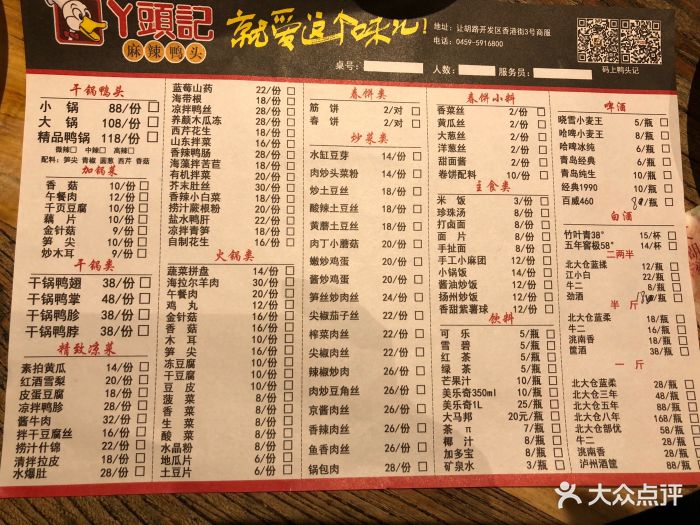 丫頭記
麻辣鸭头
就爱这个味儿!
地址：让胡路开发区香港街3号商服
电话：0459-5916800
桌号：
人数：
服务员：
码上鸭头记
干锅鸭头
小锅 88/份
大锅 108/份
精品鸭锅 118/份
微辣 中辣 高辣
配料：笋尖 青椒 圆葱 西芹 香菇
加锅菜
香菇 10/份
午餐肉 12/份
千页豆腐 10/份
藕片 10/份
金针菇 9/份
笋尖 10/份
炒木耳 9/份
干锅类
干锅鸭翅 38/份
干锅鸭掌 48/份
干锅鸭胗 38/份
干锅鸭脖 38/份
精致凉菜
素拍黄瓜 14/份
红酒雪梨 20/份
皮蛋豆腐 18/份
凉拌鸭胗 28/份
酱牛肉 32/份
拌干豆腐丝 16/份
捞汁什锦 22/份
清拌拉皮 18/份
水爆肚 28/份
蓝莓山药 22/份
海带根 18/份
凉拌鸭丝 28/份
养颜木瓜冻 28/份
西芹花生 18/份
山东拌菜 16/份
香辣鸭肠 28/份
海藻拌苦苣 18/份
有机拌菜 20/份
芥末肚丝 30/份
香辣小白菜 18/份
捞汁蕨根粉 20/份
盐水鸭肝 22/份
凉拌青笋 18/份
自制花生 16/份
火锅类
蔬菜拼盘 14/份
海拉尔羊肉 30/份
午餐肉 20/份
鸡丸 18/份
金针菇 16/份
香菇 16/份
木耳 16/份
笋尖 16/份
冻豆腐 10/份
干豆腐 10/份
豆皮 10/份
菠菜 8/份
香菜 8/份
生菜 8/份
酸菜 8/份
水晶粉 8/份
地瓜片 6/份
土豆片 6/份
春饼类
筋饼 2/对
春饼 2/对
炒菜类
水缸豆芽 14/份
肉炒头菜粉 14/份
炒土豆丝 18/份
酸辣土豆丝 18/份
黄蘑土豆丝 18/份
肉丁小蘑菇 20/份
嫩炒鸡蛋 20/份
酱炒鸡蛋 20/份
笋丝炒肉丝 24/份
尖椒茄子丝 22/份
榨菜肉丝 22/份
尖椒肉丝 22/份
辣椒炒肉 24/份
肉炒豆角丝 22/份
京酱肉丝 26/份
香辣肉丝 26/份
鱼香肉丝 26/份
锅包肉 28/份
春饼小料
香菜丝 2/份
黄瓜丝 2/份
大葱丝 2/份
洋葱丝 2/份
甜面酱 2/份
卷饼配料 10/份
主食类
米饭 3/份
珍珠汤 8/份
打卤面 8/份
面片 8/份
手扯面 8/份
手工小麻团 2/份
小锅饭 14/份
酱油炒饭 12/份
扬州炒饭 12/份
香甜紫薯球 12/份
饮料
可乐 5/瓶
雪碧 5/瓶
红茶 5/瓶
绿茶 5/瓶
芒果汁 10/瓶
美乐奇350ml 10/瓶
美乐奇1L 25/瓶
大马邦 20元/瓶
茶π 7/瓶
椰汁 8/瓶
加多宝 8/瓶
矿泉水 3/瓶
啤酒
晓雪小麦王 5/瓶
哈啤小麦王 8/瓶
哈啤冰纯 6/瓶
青岛经典 6/瓶
青岛纯生 10/瓶
经典1990 10/瓶
百威460 /瓶
白酒
竹叶青38° 15/杯
五年窖极58° 14/杯
二两半
北大仓蓝揉 12/瓶
江小白 22/瓶
牛二 8/瓶
劲酒 /瓶
半斤
北大仓蓝柔 18/瓶
牛二 16/瓶
洮南香 18/瓶
筐酒 38/瓶
一斤
北大仓蓝柔 28/瓶
北大仓三年 48/瓶
北大仓五年 88/瓶
北大仓八年 168/瓶
北大仓部优 58/瓶
牛二 28/瓶
洮南香 28/瓶
泸州酒筐 88/瓶
大众点评